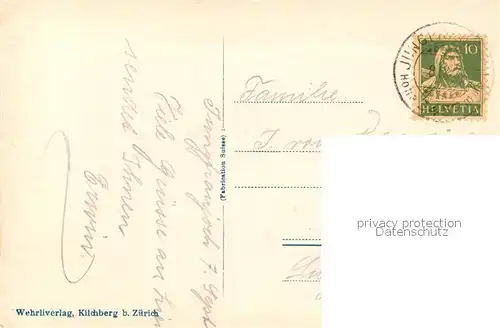 Jungfraujoch 7. Sept
Viele Grüsse aus
sendet Ihnen
Erwin.
(Fabrication Suisse)
Familie
J. von
JUNG
10
HELVETIA
privacy protection
Datenschutz
Wehrliverlag, Kilchberg b. Zürich